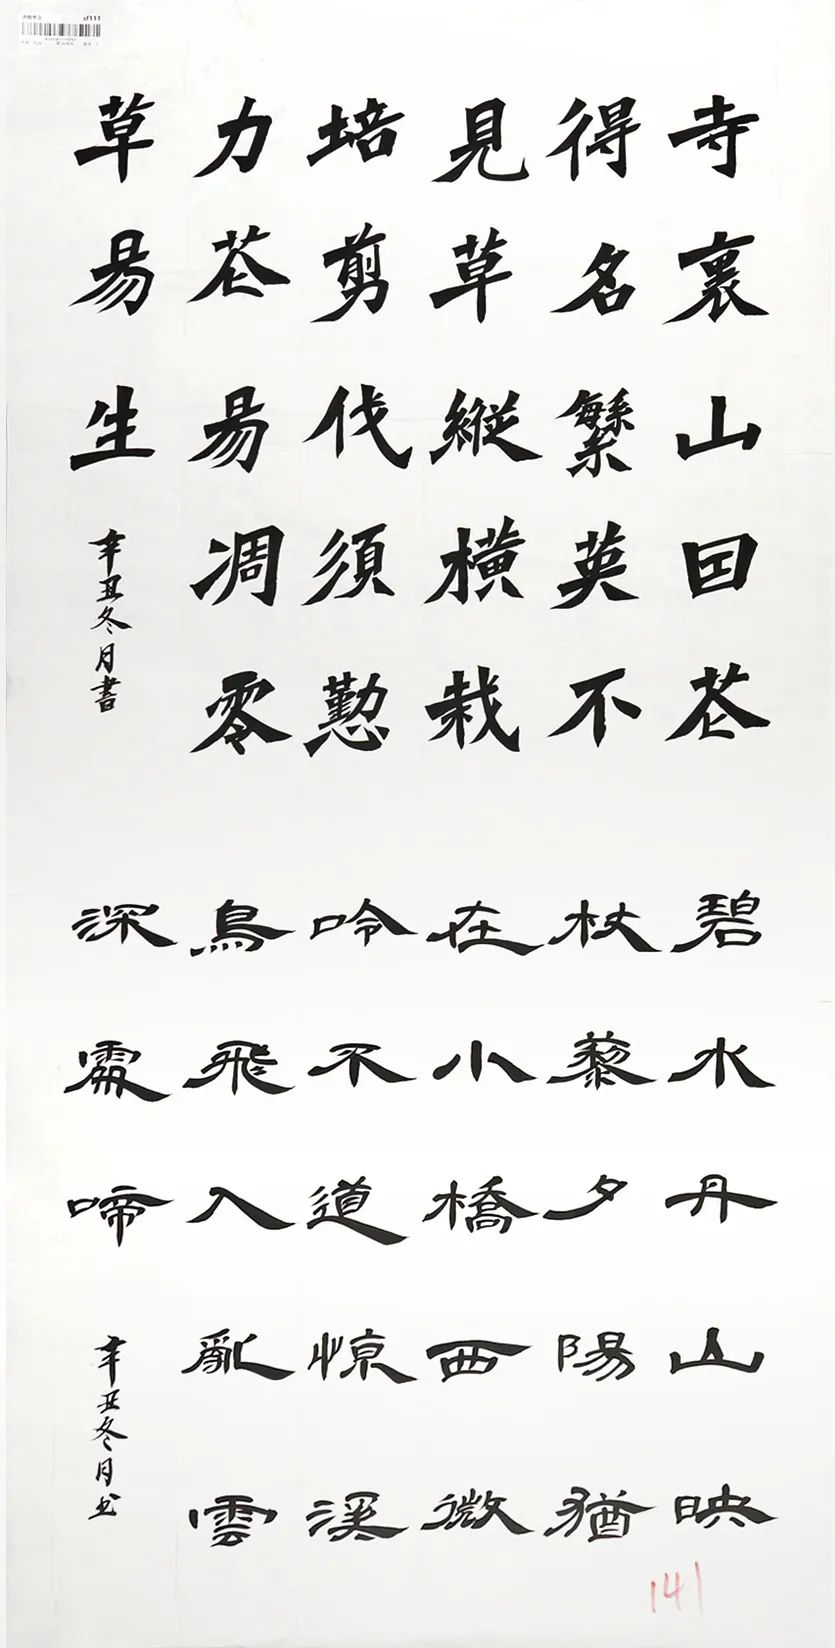 sf111
寺裏山囙花
得名繁英不
見草縱橫栽
培剪伐須懃
力花易凋零
草易生
辛丑冬月書
碧水丹山映
杖藜夕陽猶
在小橋西微
吟不道惊溪
鳥飛入亂雲
深處啼
辛丑冬月书
141